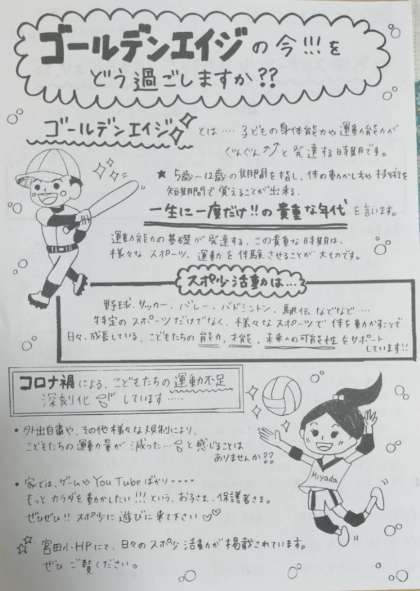 ゴールデンエイジの今!!!を
どう過ごしますか??
ゴールデンエイジ とは… 子どもの身体能力や運動能力が
ぐんぐん と発達する時期です。
★ 5歳〜12歳の期間を指し、体の動かし方や技術を
短期間で覚えることが出来る、
一生に一度だけ!!の貴重な年代 を言います。
運動能力の基礎が発達する、この貴重な時期は、
様々なスポーツ、運動を体験させることが大切です。
スポ少活動は…?
野球、サッカー、バレー、バドミントン、駅伝などなど…
特定のスポーツだけでなく、様々なスポーツで体を動かすことで
日々、成長している、こどもたちの能力、才能、未来への可能性をサポート
しています!!
コロナ禍による、こどもたちの運動不足
深刻化 しています……
・外出自粛や、その他様々な規制により、
こどもたちの運動量が減った…と感じることは
ありませんか??
・家では、ゲームやYouTubeばかり・・・・
もっとカラダを動かしたい!!!という、お子さま、保護者さま。
ぜひぜひ!!スポ少に遊びに来て下さい♡♡
Miyada
☆ 宮田小HPにて、日々のスポ少活動が掲載されています。
ぜひご覧ください。